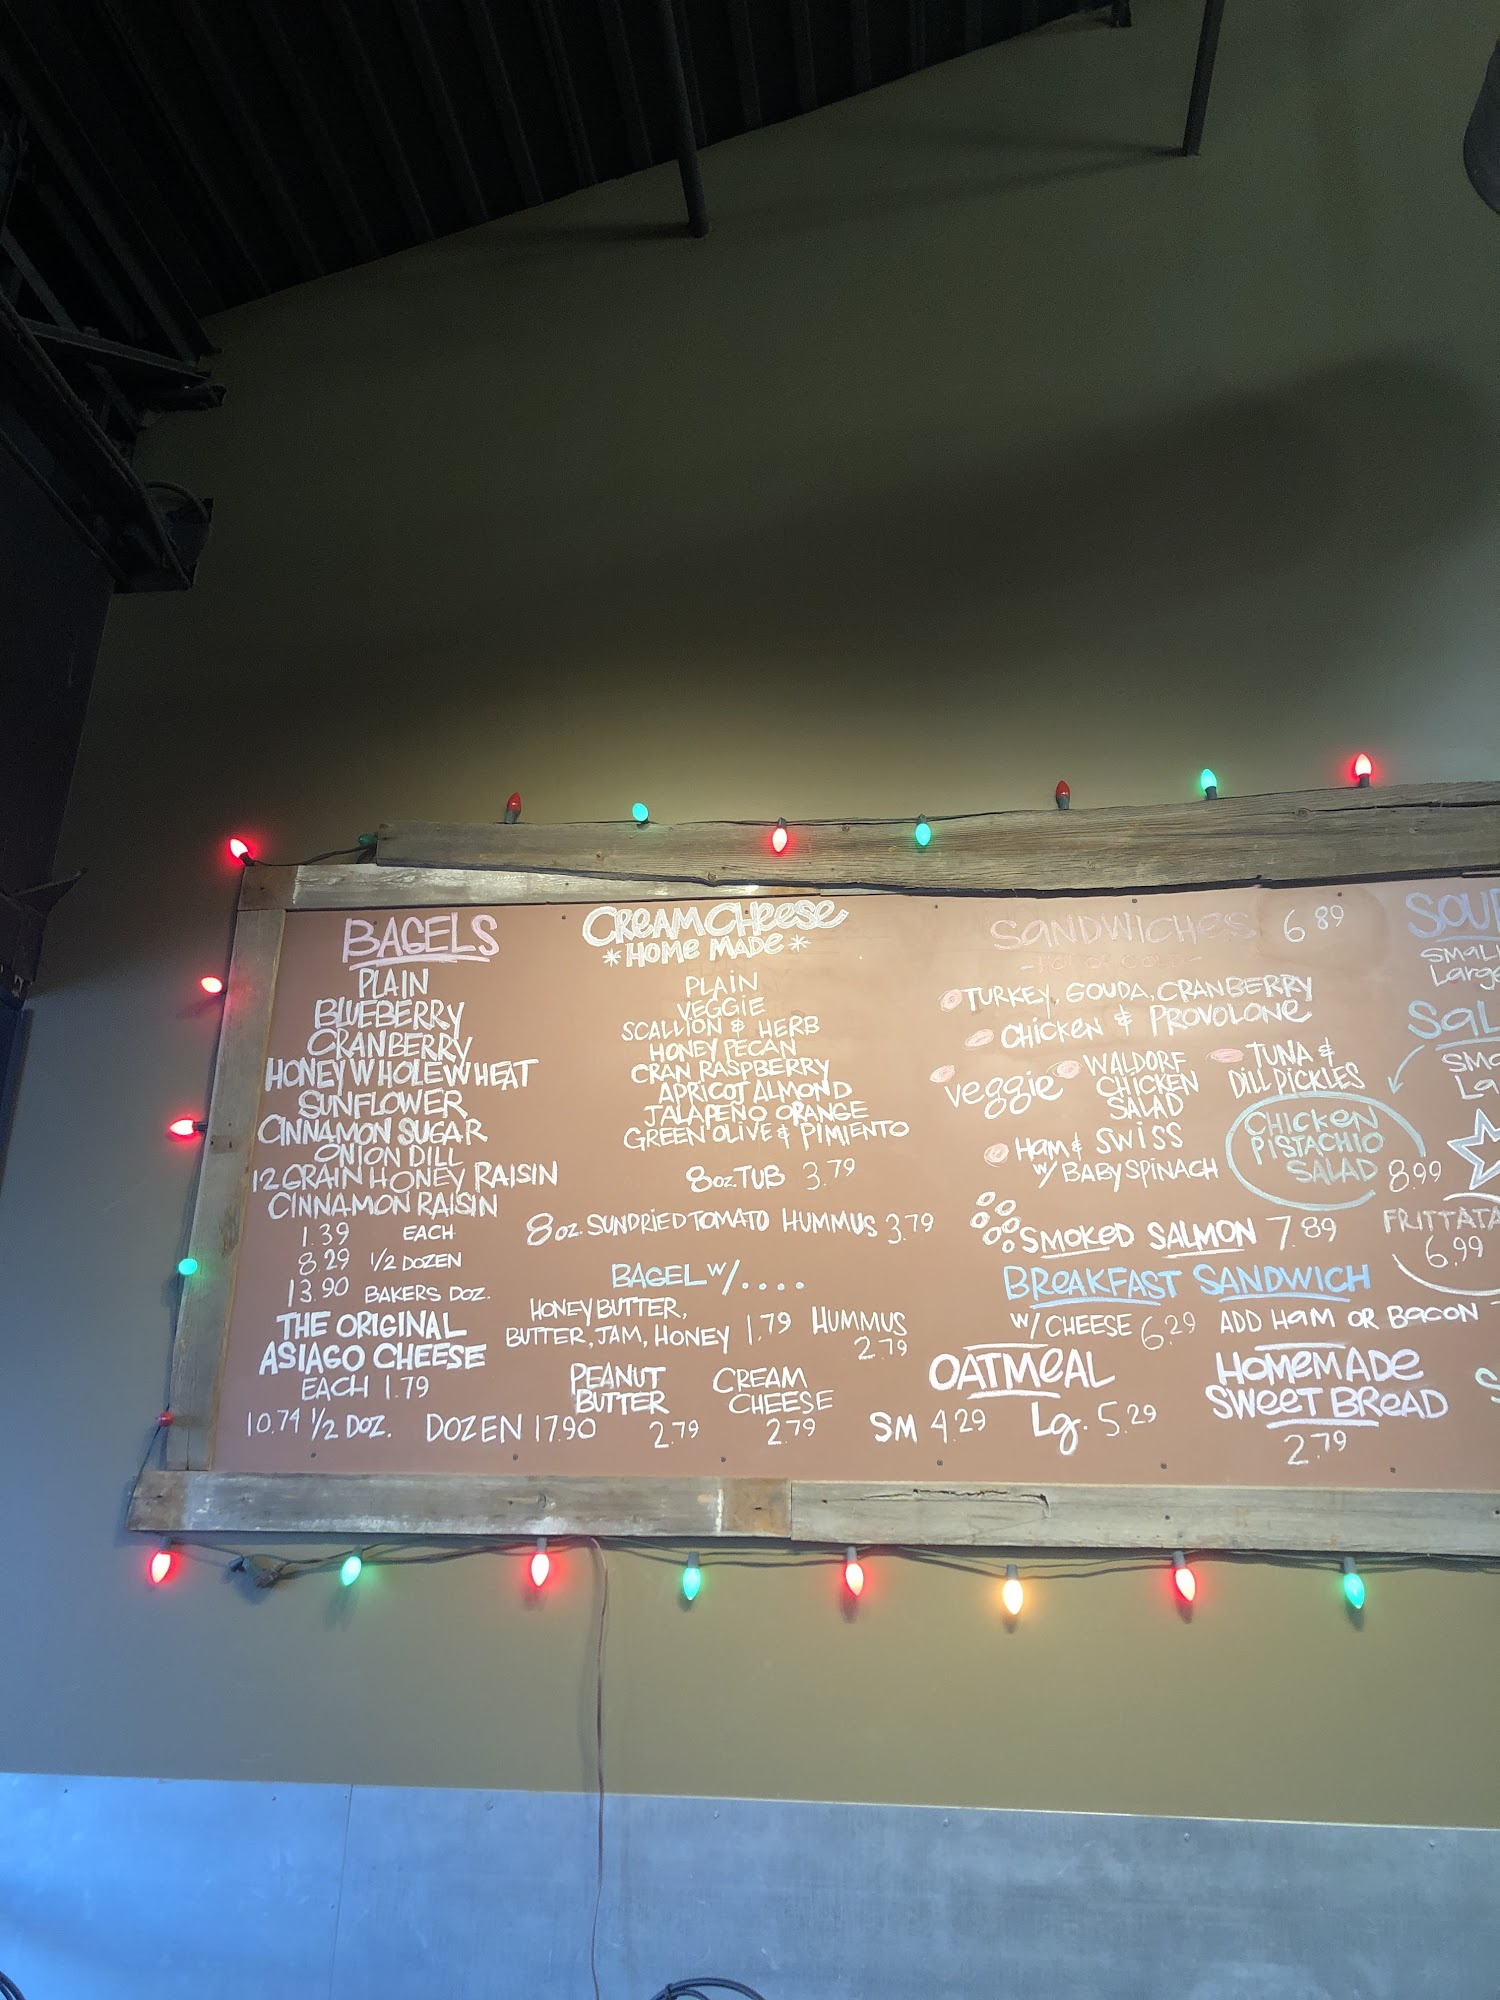 BAGELS
PLAIN
BLUEBERRY
CRANBERRY
HONEY WHOLEWHEAT
SUNFLOWER
CINNAMON SUGAR
ONION DILL
12 GRAIN HONEY RAISIN
CINNAMON RAISIN
1.39 EACH
8.29 1/2 DOZEN
13.90 BAKERS DOZ.
THE ORIGINAL
ASIAGO CHEESE
EACH 1.79
10.74 1/2 DOZ. DOZEN 17.90
CREAM CHEESE
*HOME MADE*
PLAIN
VEGGIE
SCALLION & HERB
HONEY PECAN
CRAN RASPBERRY
APRICOT ALMOND
JALAPEÑO ORANGE
GREEN OLIVE & PIMIENTO
8oz. TUB 3.79
8oz. SUNDRIED TOMATO HUMMUS 3.79
BAGEL w/....
HONEY BUTTER,
BUTTER, JAM, HONEY 1.79
HUMMUS
2.79
PEANUT
BUTTER
2.79
CREAM
CHEESE
2.79
SANDWICHES 6.89
-HOT OR COLD-
TURKEY, GOUDA, CRANBERRY
CHICKEN & PROVOLONE
veggie
WALDORF
CHICKEN
SALAD
TUNA &
DILL PICKLES
HAM & SWISS
w/ BABY SPINACH
CHICKEN
PISTACHIO
SALAD 8.99
SMOKED SALMON 7.89
BREAKFAST SANDWICH
w/ CHEESE 6.29 ADD HAM OR BACON
OATMEAL
SM 4.29 Lg. 5.29
HOMEMADE
SWEET BREAD
2.79
SOU
SMALL
Large
SaL
SMa
La
FRITTATA
6.99